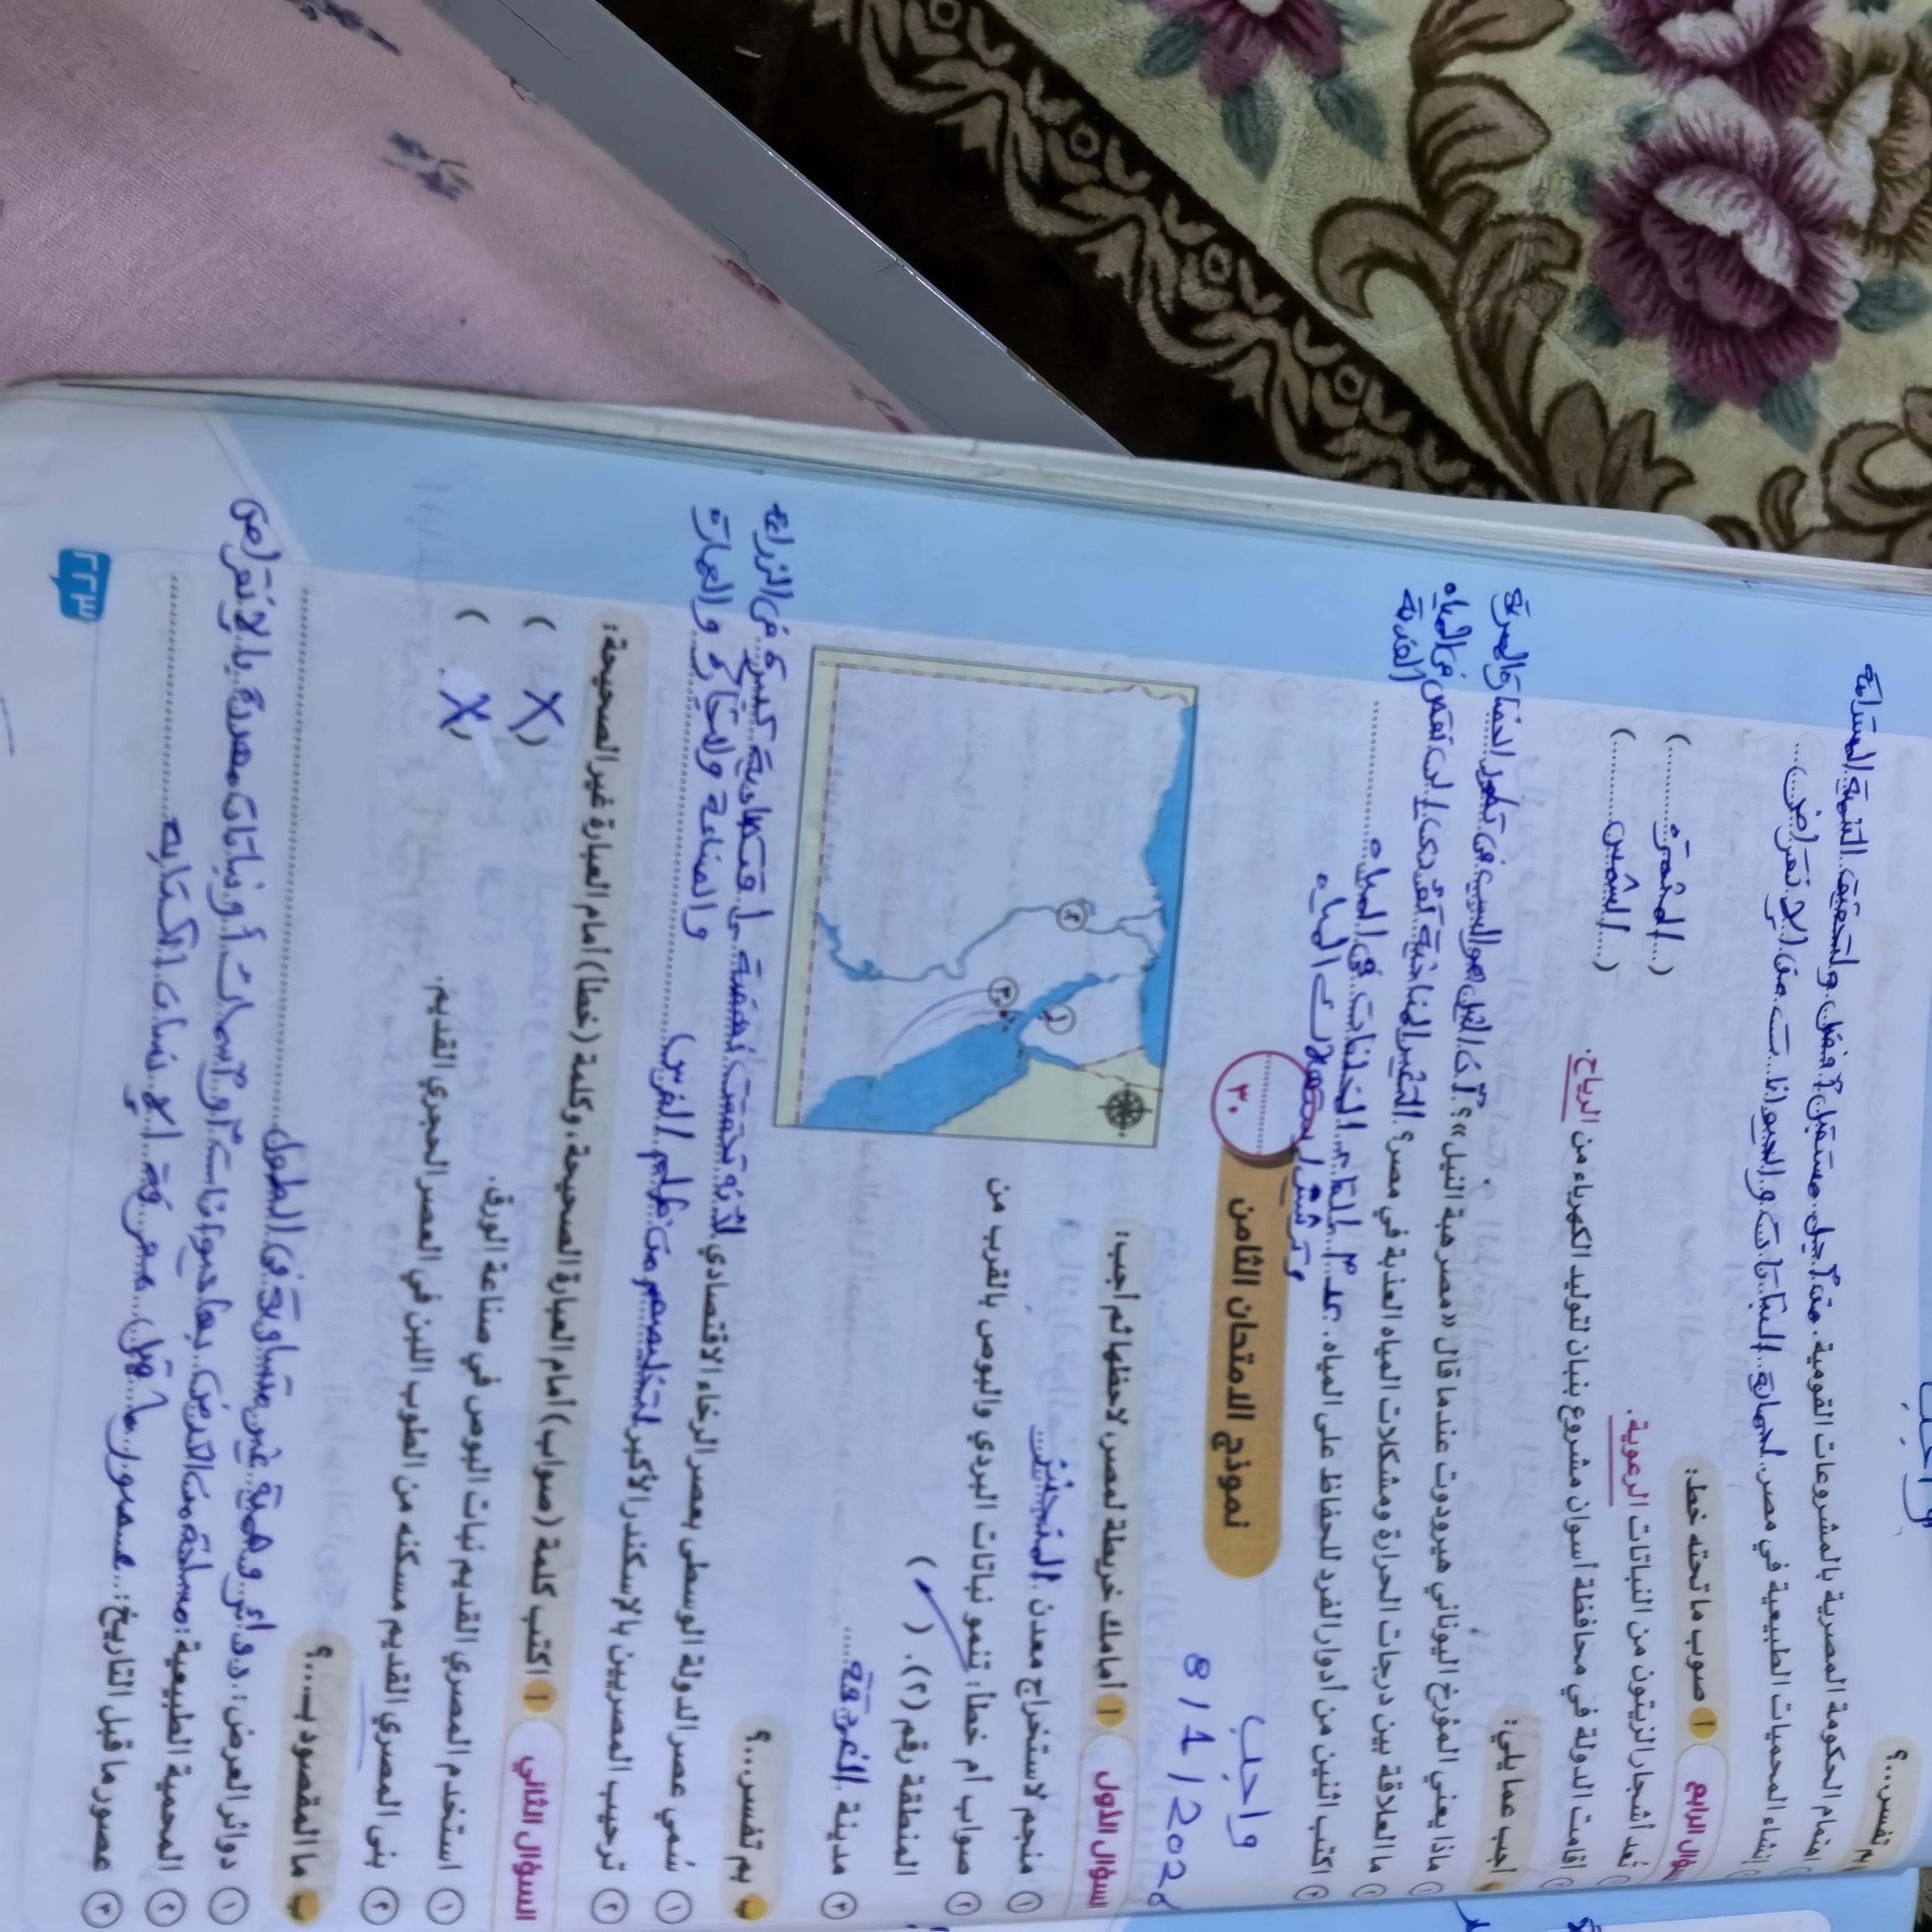 بم تفسر...؟
اهتمام الحكومة المصرية بالمشروعات القومية. من أجل مستقبل أفضل ولتحقيق التنمية المستدامة
إنشاء المحميات الطبيعية في مصر. لحماية النباتات والحيوانات من الانقراض
سؤال الرابع
أ صوب ما تحته خط:
تعد أشجار الزيتون من النباتات الرعوية. (المثمرة)
أقامت الدولة في محافظة أسوان مشروع بنبان لتوليد الكهرباء من الرياح. (الشمس)
أجب عما يلي:
ماذا يعني المؤرخ اليوناني هيرودوت عندما قال «مصر هبة النيل»؟ أن النيل هو السبب في تطور الحضارة المصرية
ما العلاقة بين درجات الحرارة ومشكلات المياه العذبة في مصر؟ التغير المناخية تؤدى إلى نقص في المياه العذبة
٢ اكتب اثنين من أدوار الفرد للحفاظ على المياه. عدم إلقاء المخلفات في المياه
وترشيد استهلاك المياه
واجب
8/1/202
نموذج الامتحان الثامن
٣٠
السؤال الأول
أ أمامك خريطة لمصر، لاحظها ثم أجب:
١ منجم لاستخراج معدن المنجنيز
٢ صواب أم خطأ: تنمو نباتات البردي والبوص بالقرب من
المنطقة رقم (٢). ( ✓ )
٣ مدينة الغردقة
١
٢
٣
ب بم تفسر...؟
١ سُمي عصر الدولة الوسطى بعصر الرخاء الاقتصادي لأنه تحققت نهضة اقتصادية كبيرة في الزراعة
والصناعة والتجارة والعمارة
٢ ترحيب المصريين بالإسكندر الأكبر لتخليصهم من ظلم الفرس
السؤال الثاني
أ اكتب كلمة (صواب) أمام العبارة الصحيحة، وكلمة (خطأ) أمام العبارة غير الصحيحة:
١ استخدم المصري القديم نبات البوص في صناعة الورق. ( X )
٢ بنى المصري القديم مسكنه من الطوب اللبن في العصر الحجري القديم. ( X )
ب ما المقصود بـ...؟
١ دوائر العرض: دوائر وهمية غير متساوية في الطول
٢ المحمية الطبيعية: مساحة من الأرض بها حيوانات أو أسماك أو نباتات مهددة بالانقراض
٣ عصور ما قبل التاريخ: عصور ما قبل معرفة الإنسان الكتابة
٢٢٣